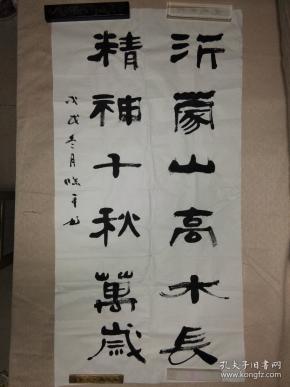 沂蒙山高水长
精神千秋萬歲
戊戌冬月
孔夫子旧书网
www.kongfz.com